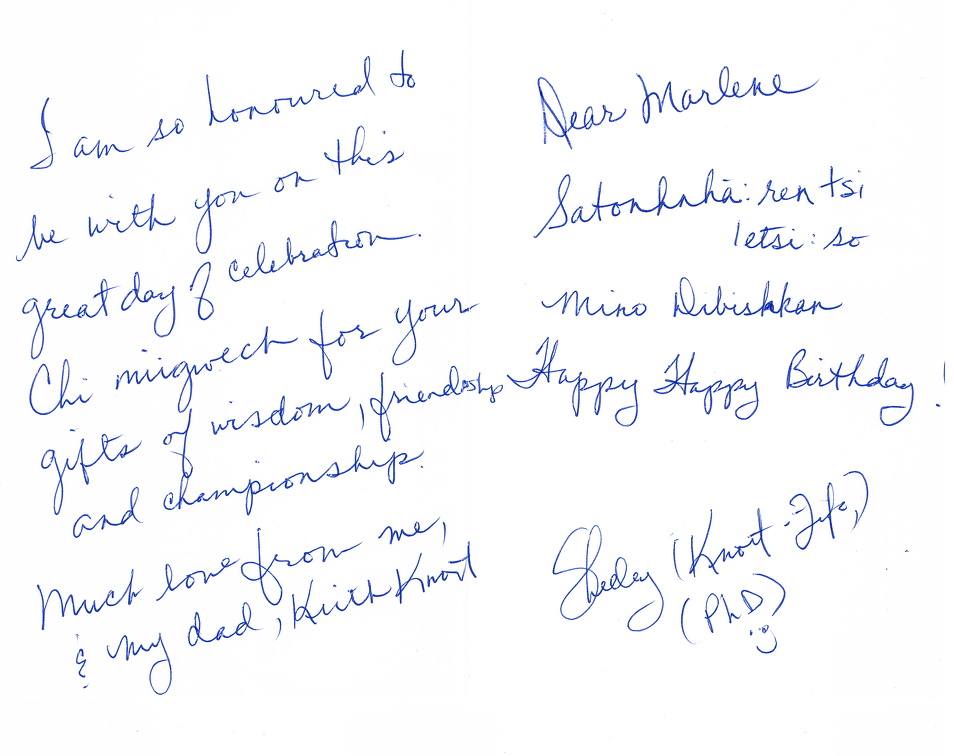 I am so honoured to
be with you on this
great day of celebration.
Chi miigwech for your
gifts of wisdom, friendship
and championship.
Much love from me,
& my dad, Keith Knott
Dear Marlene
Satonhnhà:ren tsi
letsi:so
Mino Dibishkan
Happy Happy Birthday!
(Knott-
(PhD)